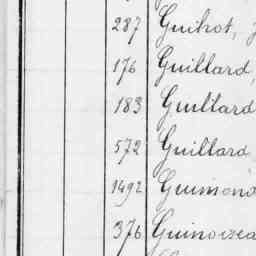 287 Guihot, J
176 Guillard,
183 Guillard
572 Guillard
1492 Guimond
376 Guinoisea